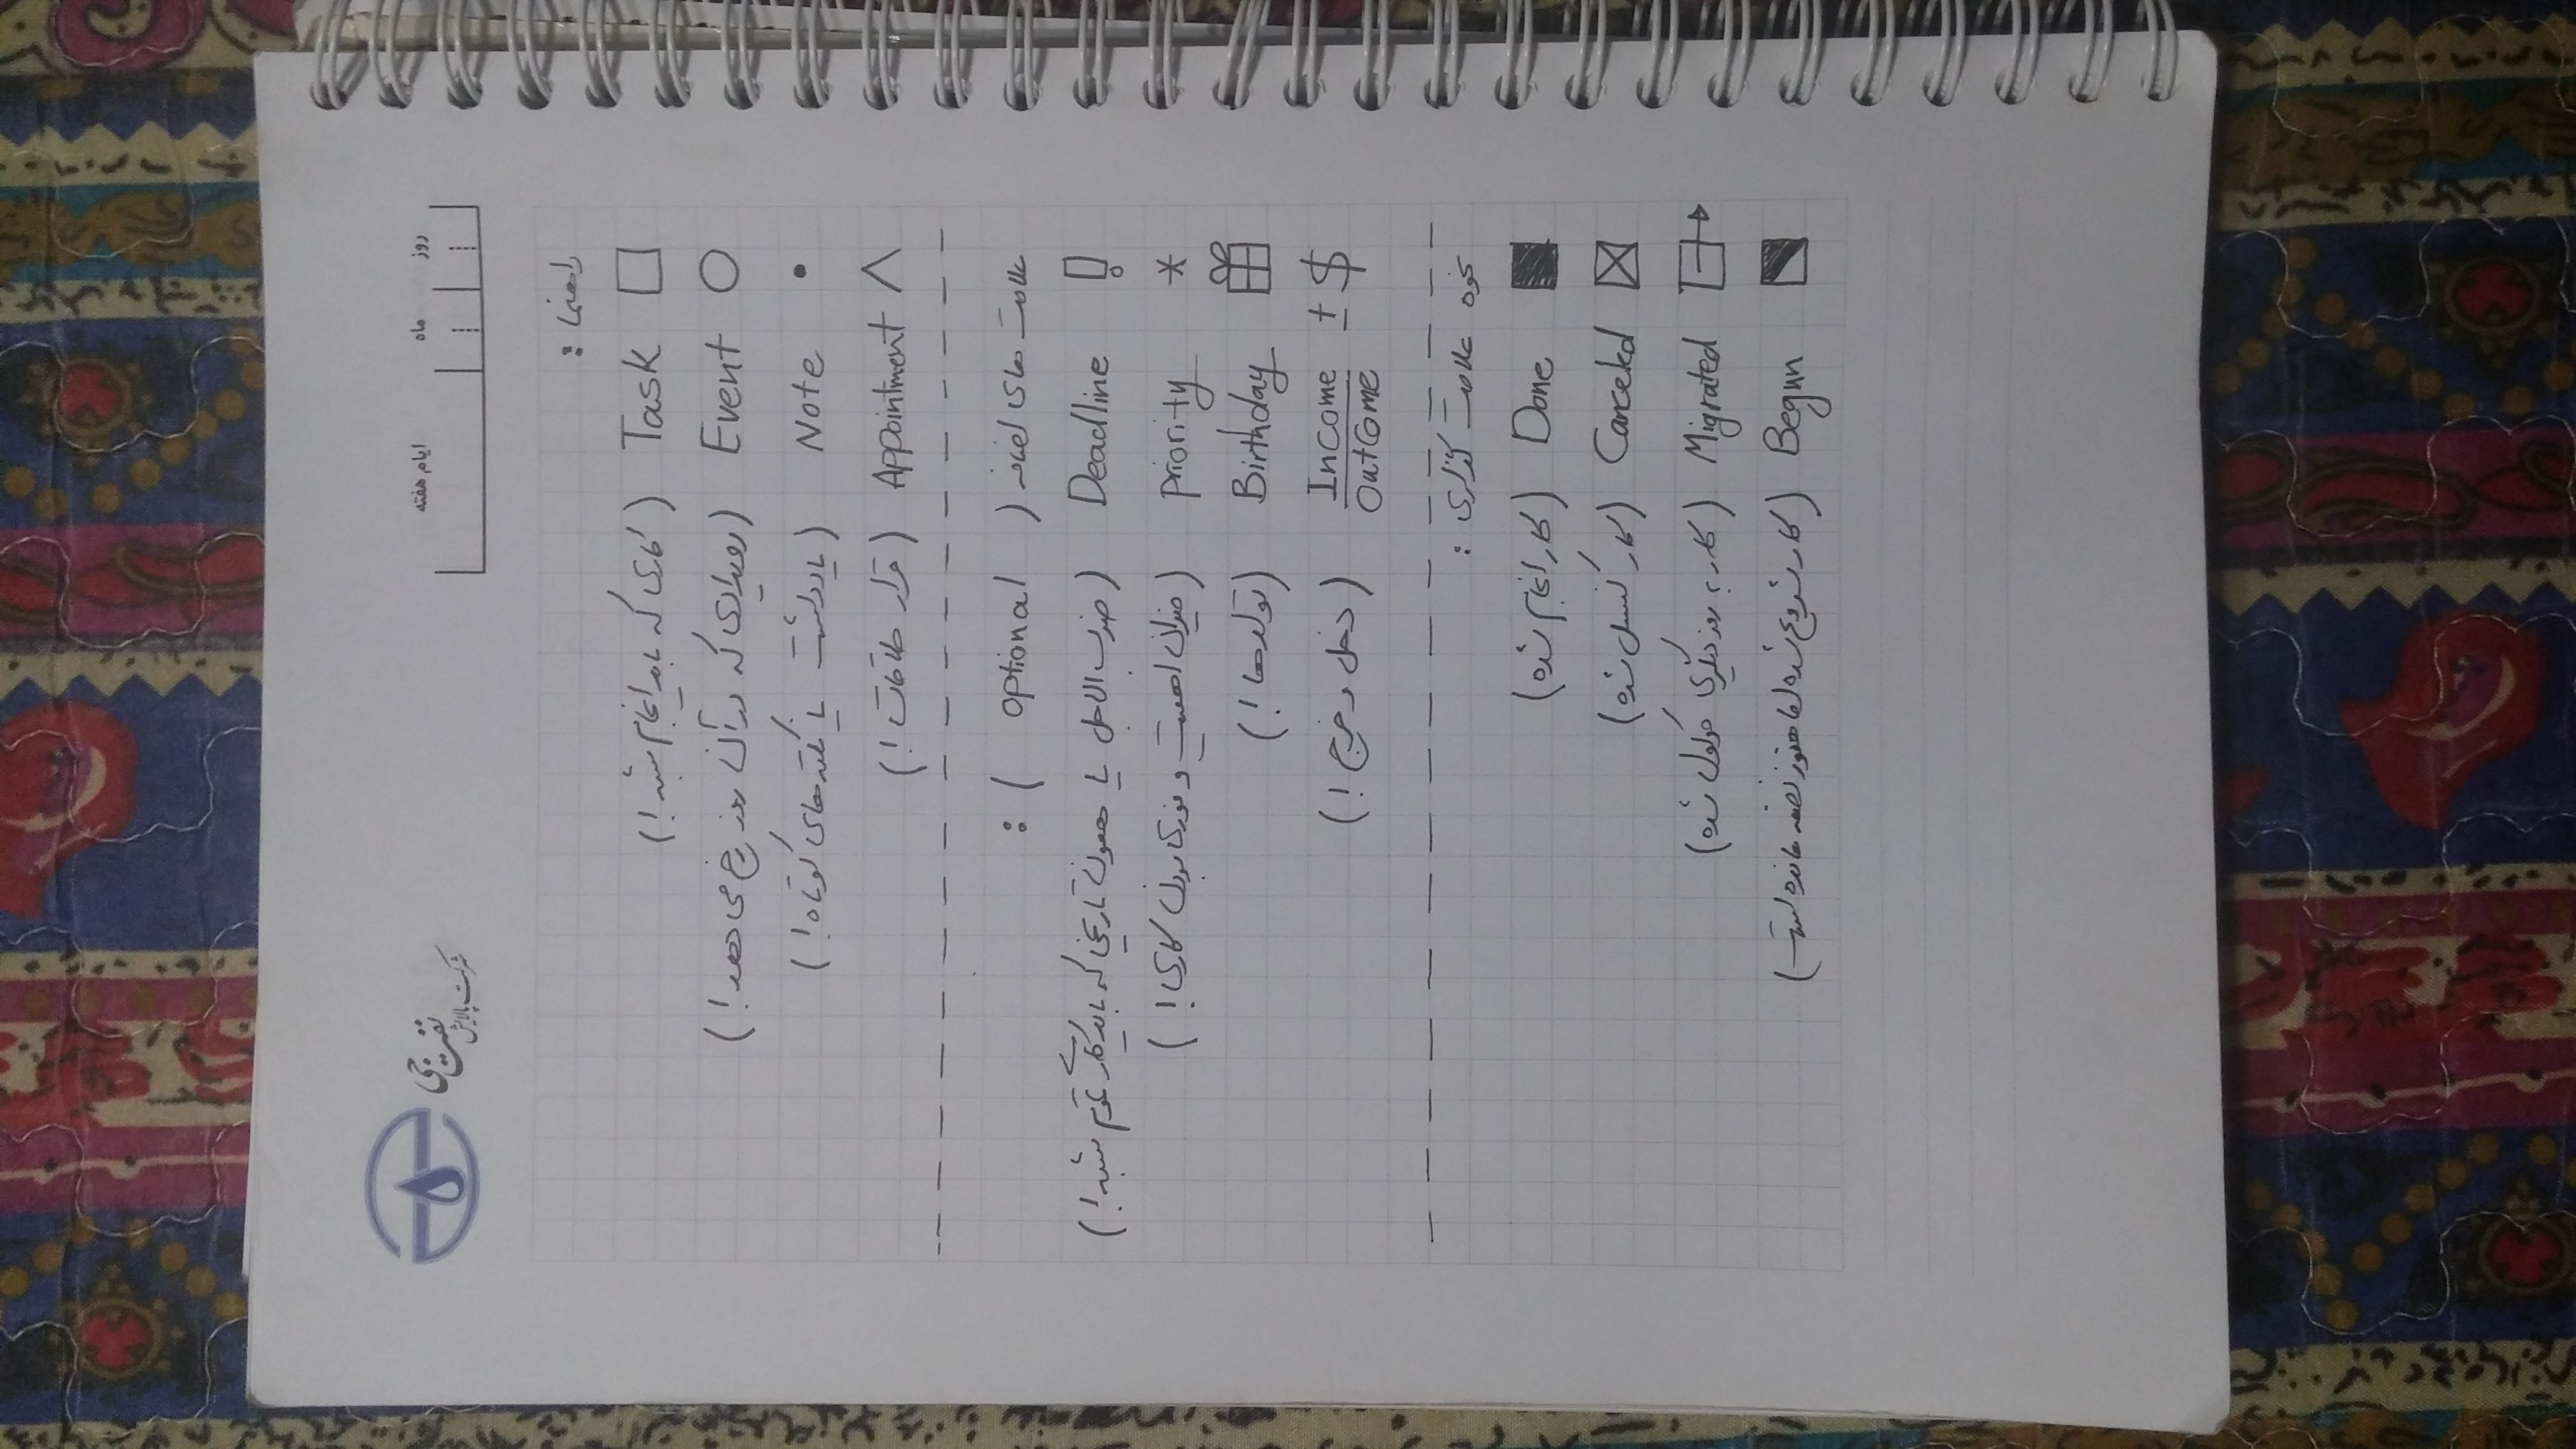 شرکت پالایش نفت
ایام هفته ماه روز
راهنما :
Task (کاری که باید انجام بشه!)
Event (رویدادی که در آن روز رخ می دهد!)
Note (یادداشت یا نکته های کوتاه!)
Appointment (قرار ملاقات!)
علامت های اضافه ( optional ) :
Deadline (ضرب الاجل یا همون تاریخی که باید کار تموم بشه!)
* Priority (میزان اهمیت و فورس بودن کاری!)
Birthday (تولدها!)
$ ± Income
Outcome (دخل و خرج!)
نحوه علامت گذاری :
Done (کار انجام شده)
Canceled (کار کنسل شده)
Migrated (کار به روز دیگری موکول شده)
Begun (کار شروع شده اما هنوز نصفه مانده است)